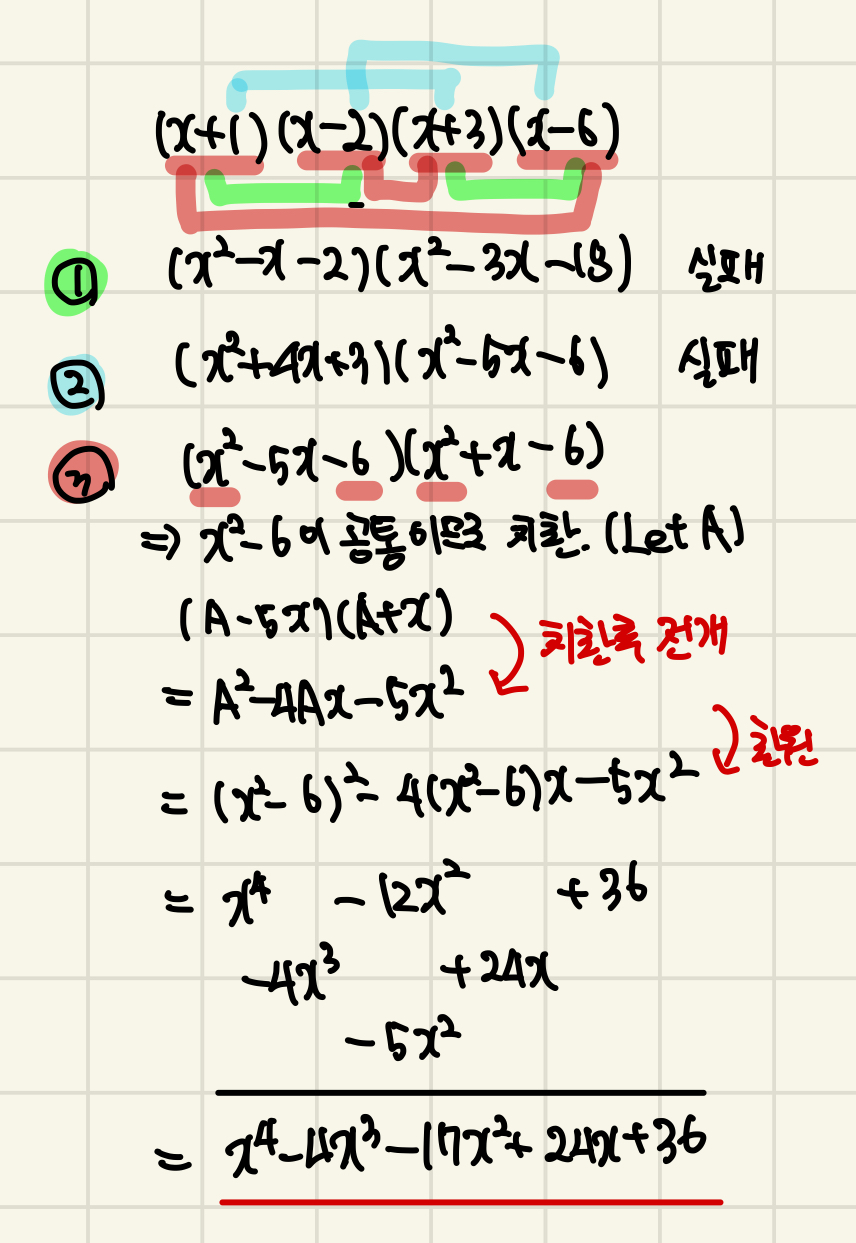 (x+1)(x-2)(x+3)(x-6)
① (x²-x-2)(x²-3x-18) 실패
② (x²+4x+3)(x²-5x-6) 실패
③ (x²-5x-6)(x²+x-6)
⇒ x²-6이 공통이므로 치환. (Let A)
(A-5x)(A+x)
치환후 전개
= A²-4Ax-5x²
환원
= (x²-6)²-4(x²-6)x-5x²
= x⁴ -12x² +36
-4x³ +24x
-5x²
= x⁴-4x³-17x²+24x+36